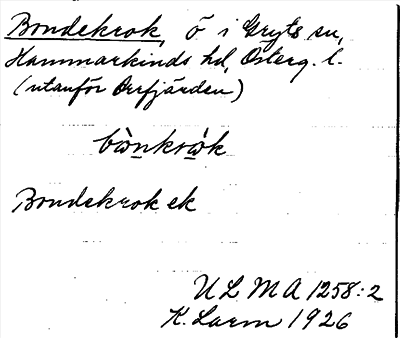 Bondekrok, ö i Gryts sn,
Hammarkinds hd, Österg. l.
(utanför Orrfjärden)
bònkròk
Bondekrok ek
ULMA 1258:2
K. Larm 1926